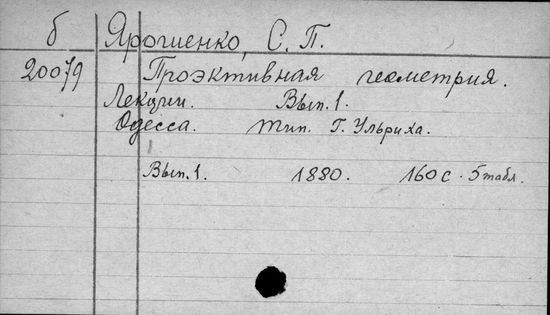 б Ярошенко, С. П.
20079 Проэктивная геометрия.
Лекции. Вып. 1.
Одесса. тип. Г. Ульриха.
Вып. 1. 1880. 160 с. 5 табл.